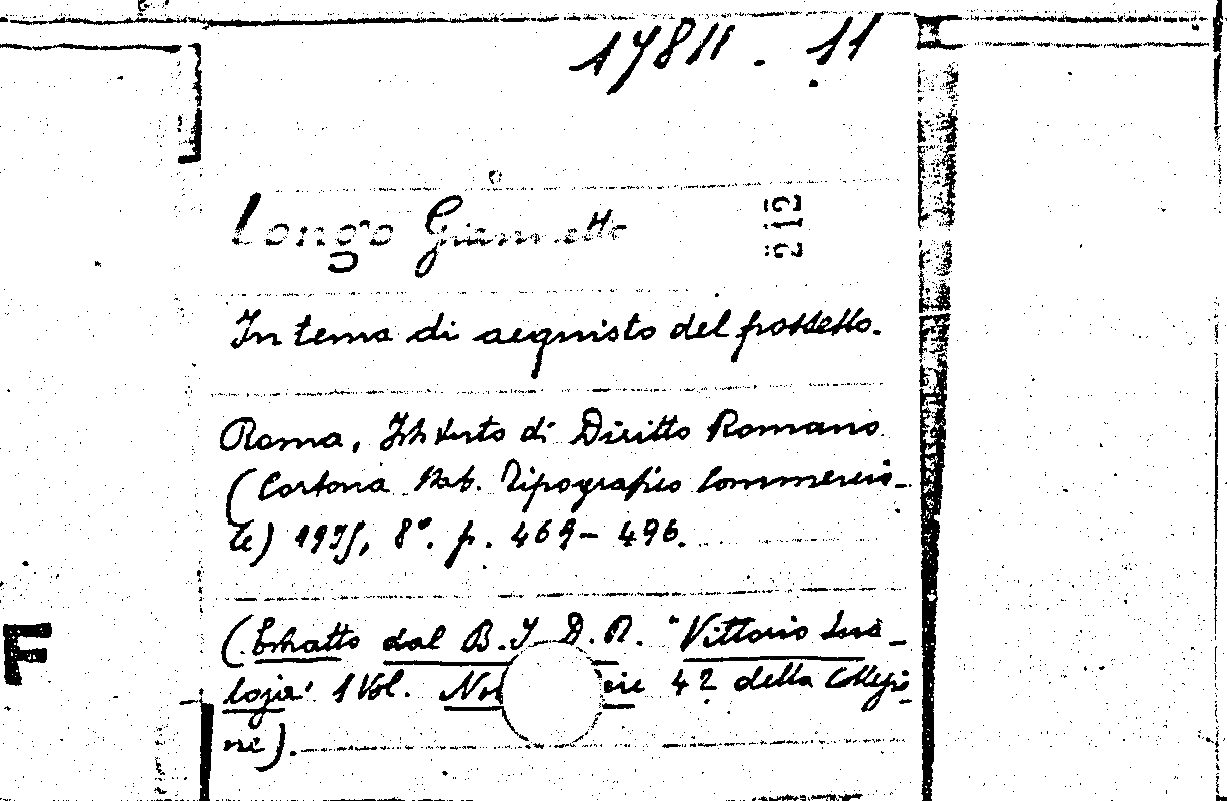 17811 . 11
Longo Giannetto
212
In tema di acquisto del possesso.
Roma, Istituto di Diritto Romano
(Cortona Stab. Tipografico Commercia-
le) 1935, 8°. p. 469-496.
(Estratto dal B.I.D.R. "Vittorio Scia-
loja" 1 Vol. 42 della Collezio
ne).
F